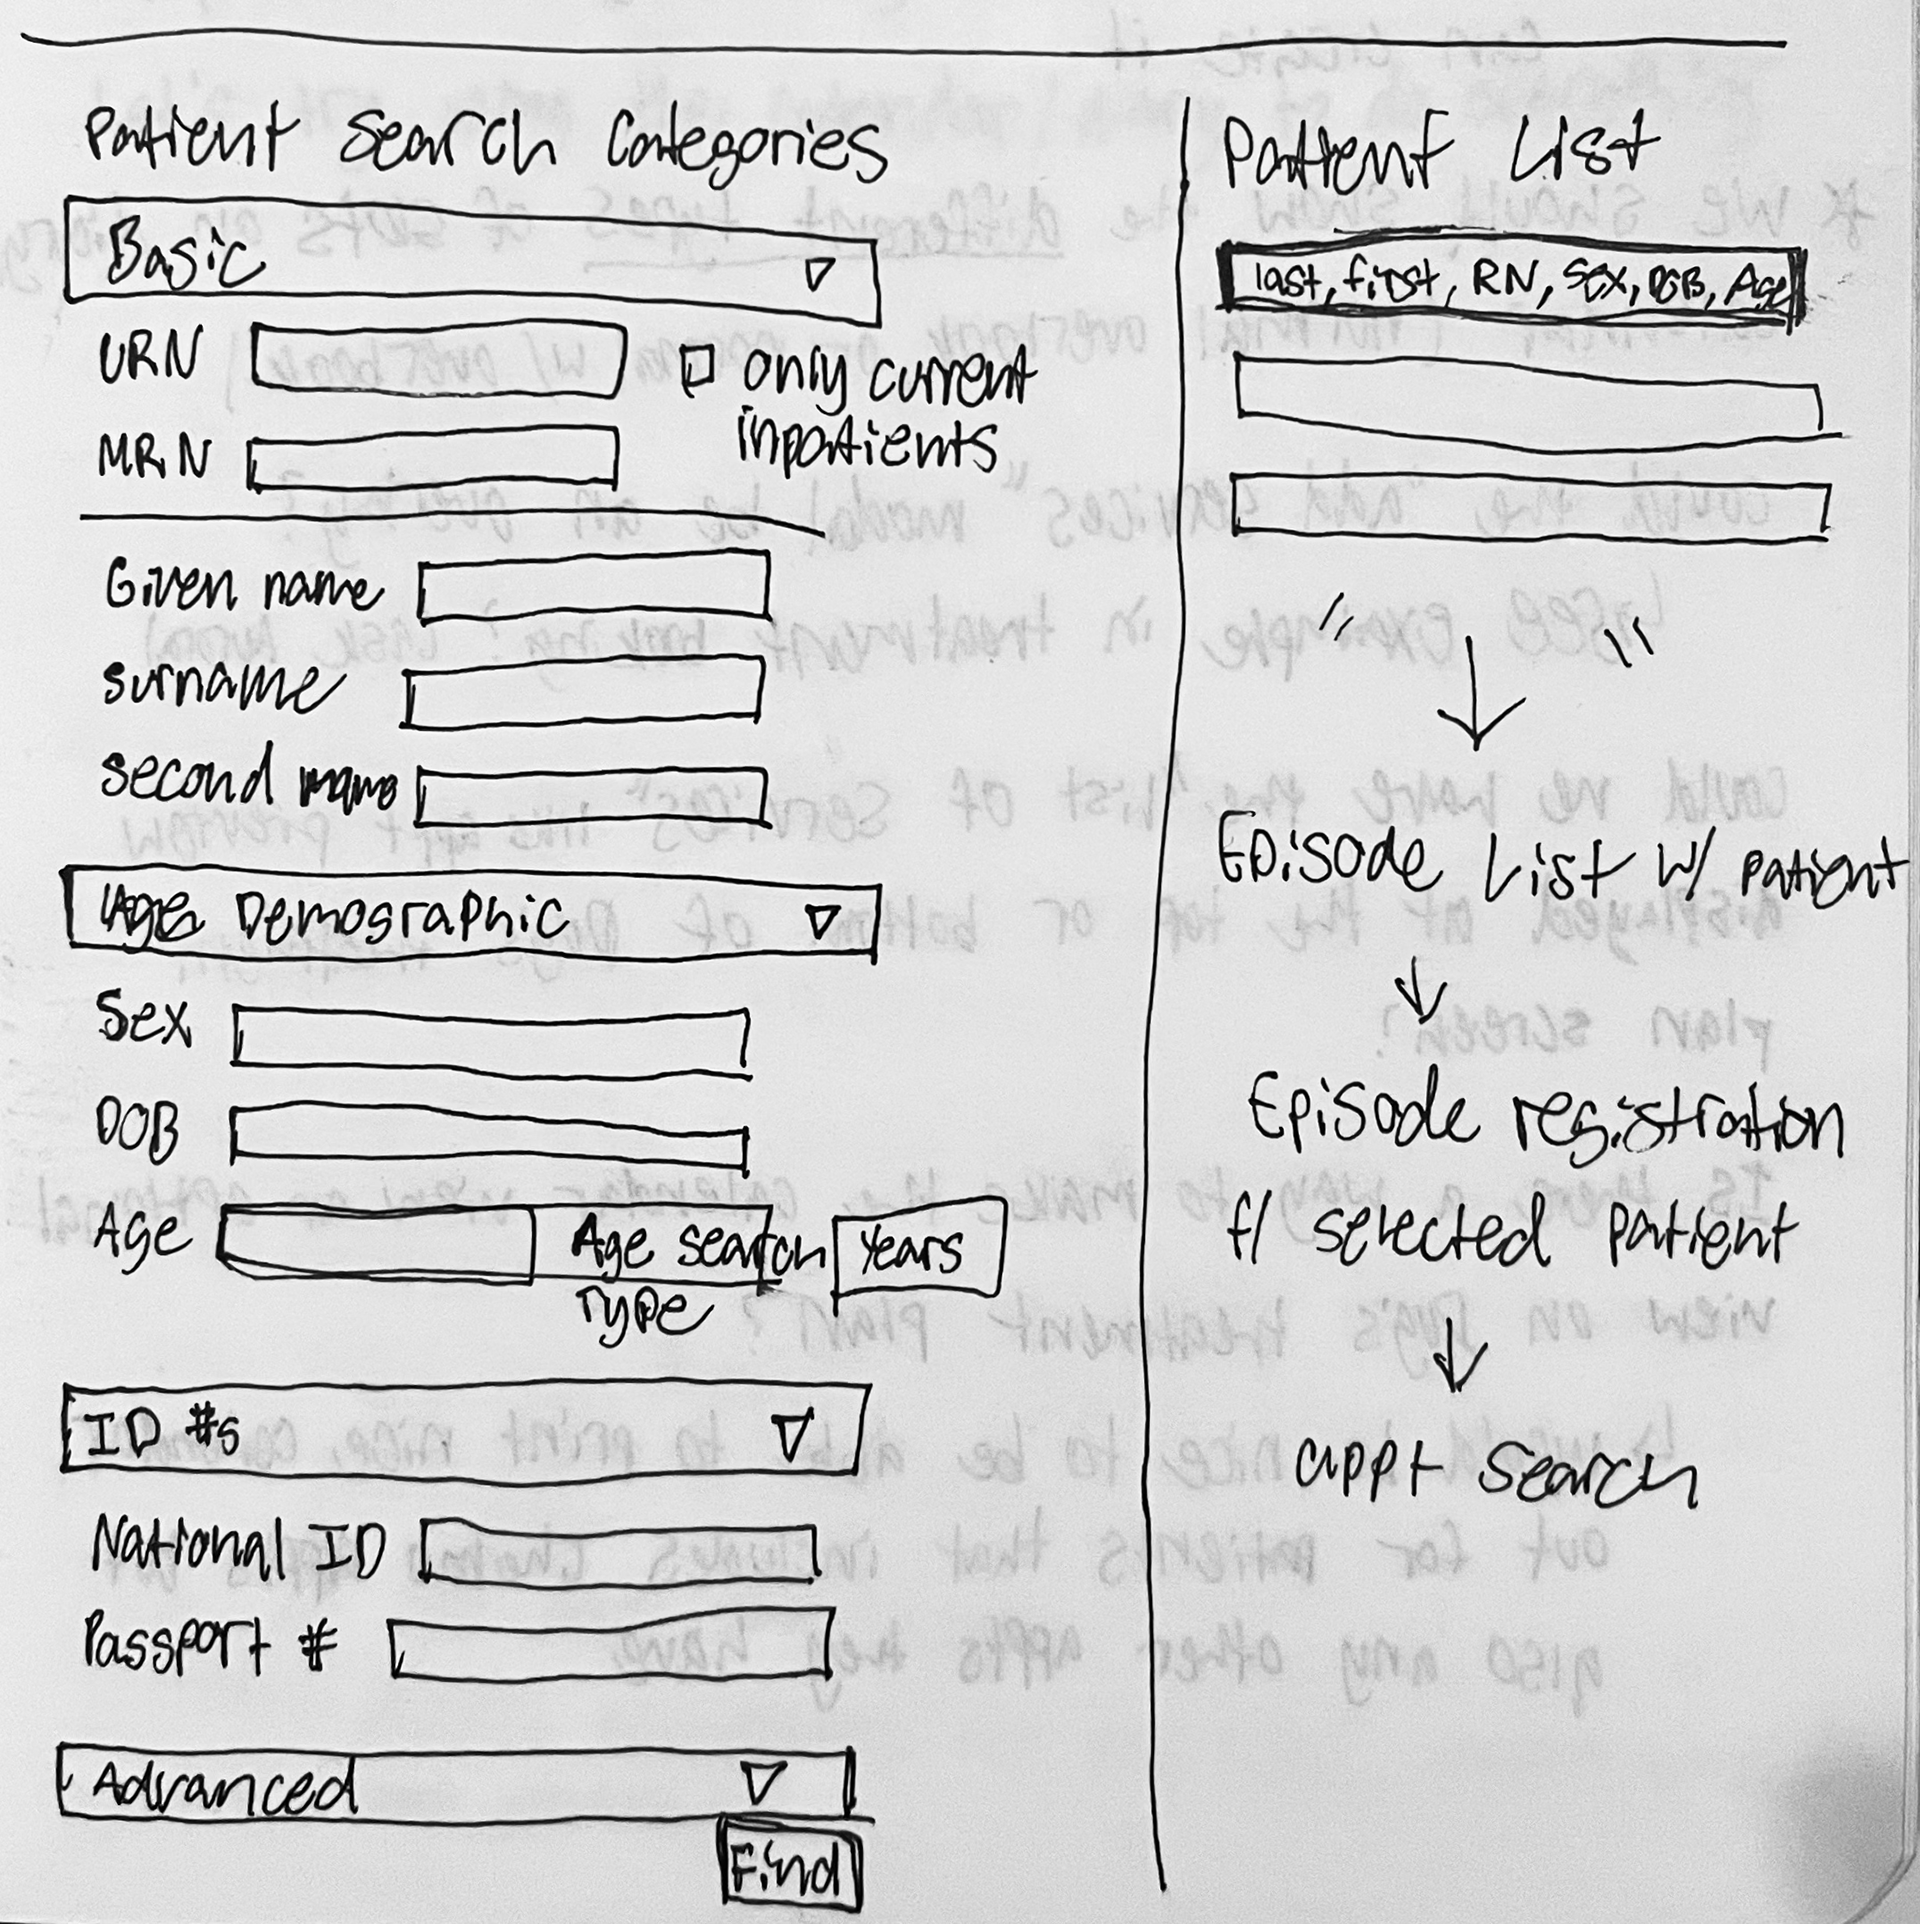 Patient Search Categories
Basic
URN
only current
inpatients
MRN
Given name
surname
second name
Age Demographic
Sex
DOB
Age
Age search
Type
Years
ID #s
National ID
Passport #
Advanced
Find
Patient List
last, first, RN, Sex, DOB, Age
" "
Episode List w/ patient
Episode registration
f/ selected patient
appt search